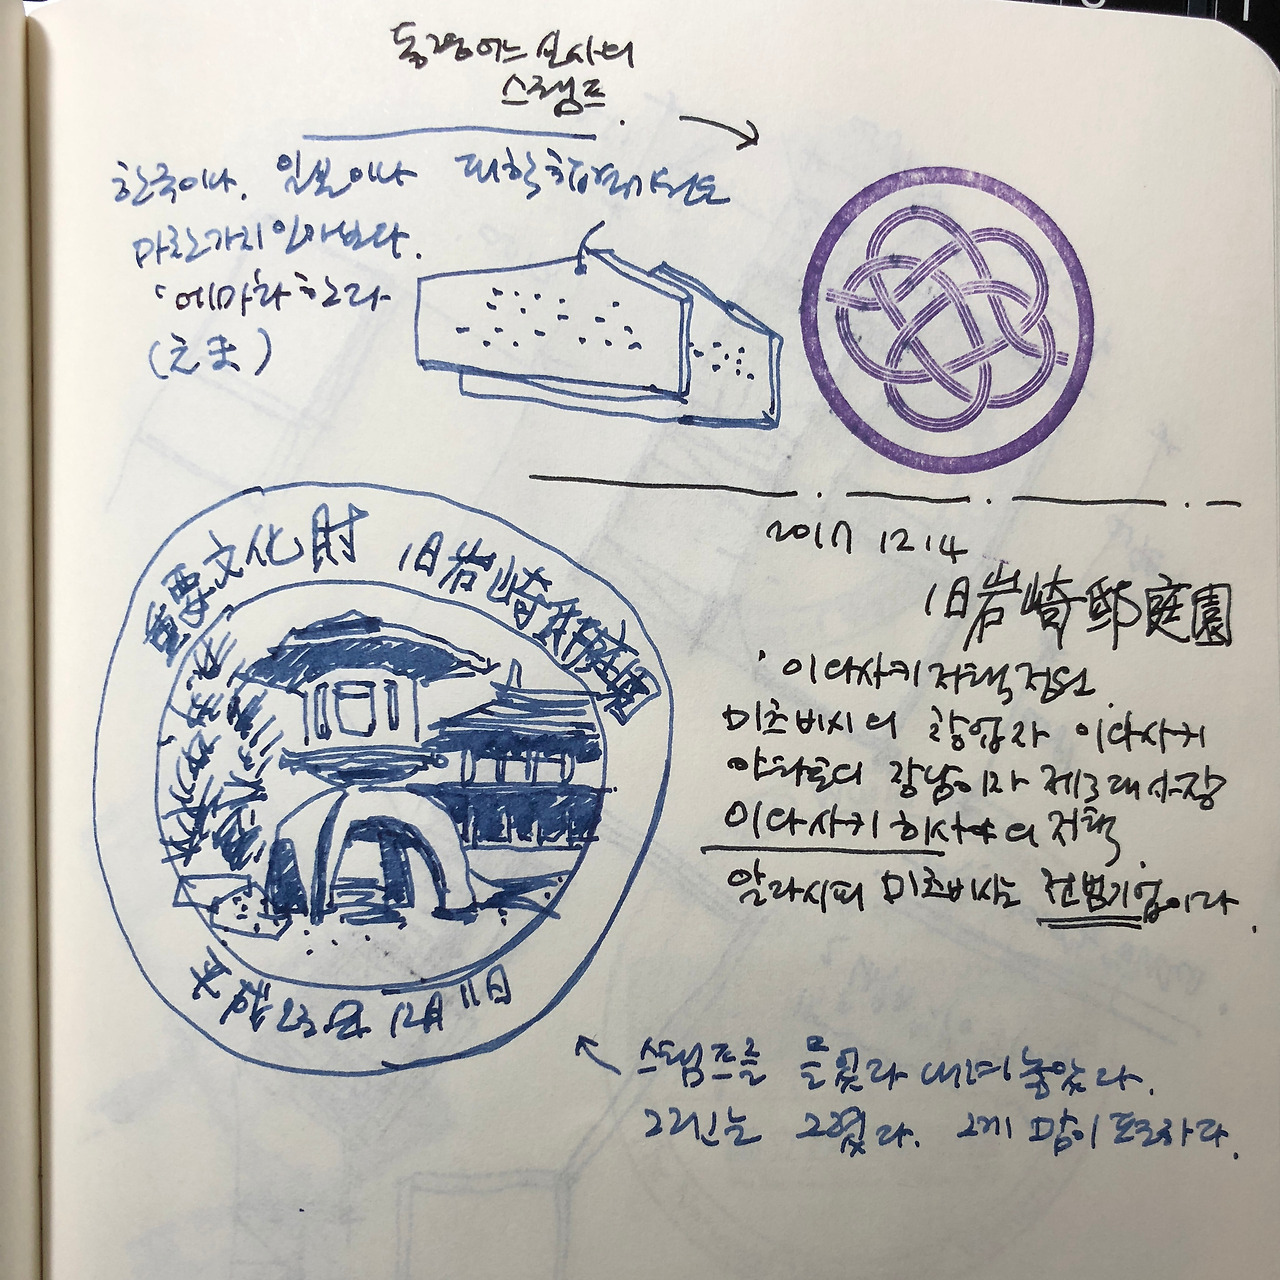 동경 어느 신사의
스탬프.
한국이나, 일본이나 대학합격기원도
마찬가지인가보다.
'에마라 하는라
(えま)
重要文化財 旧岩崎邸庭園
2017 12 14
旧岩崎邸庭園
이와사키 저택 정원
미츠비시의 창업자 이와사키
야타로의 장남이자 제3대 사장
이와사키 히사야의 저택.
알라시피 미츠비시는 전범기업이라.
스탬프를 들었다 내려놓았다.
그리는 그렸다. 그게 맘이 편하다.